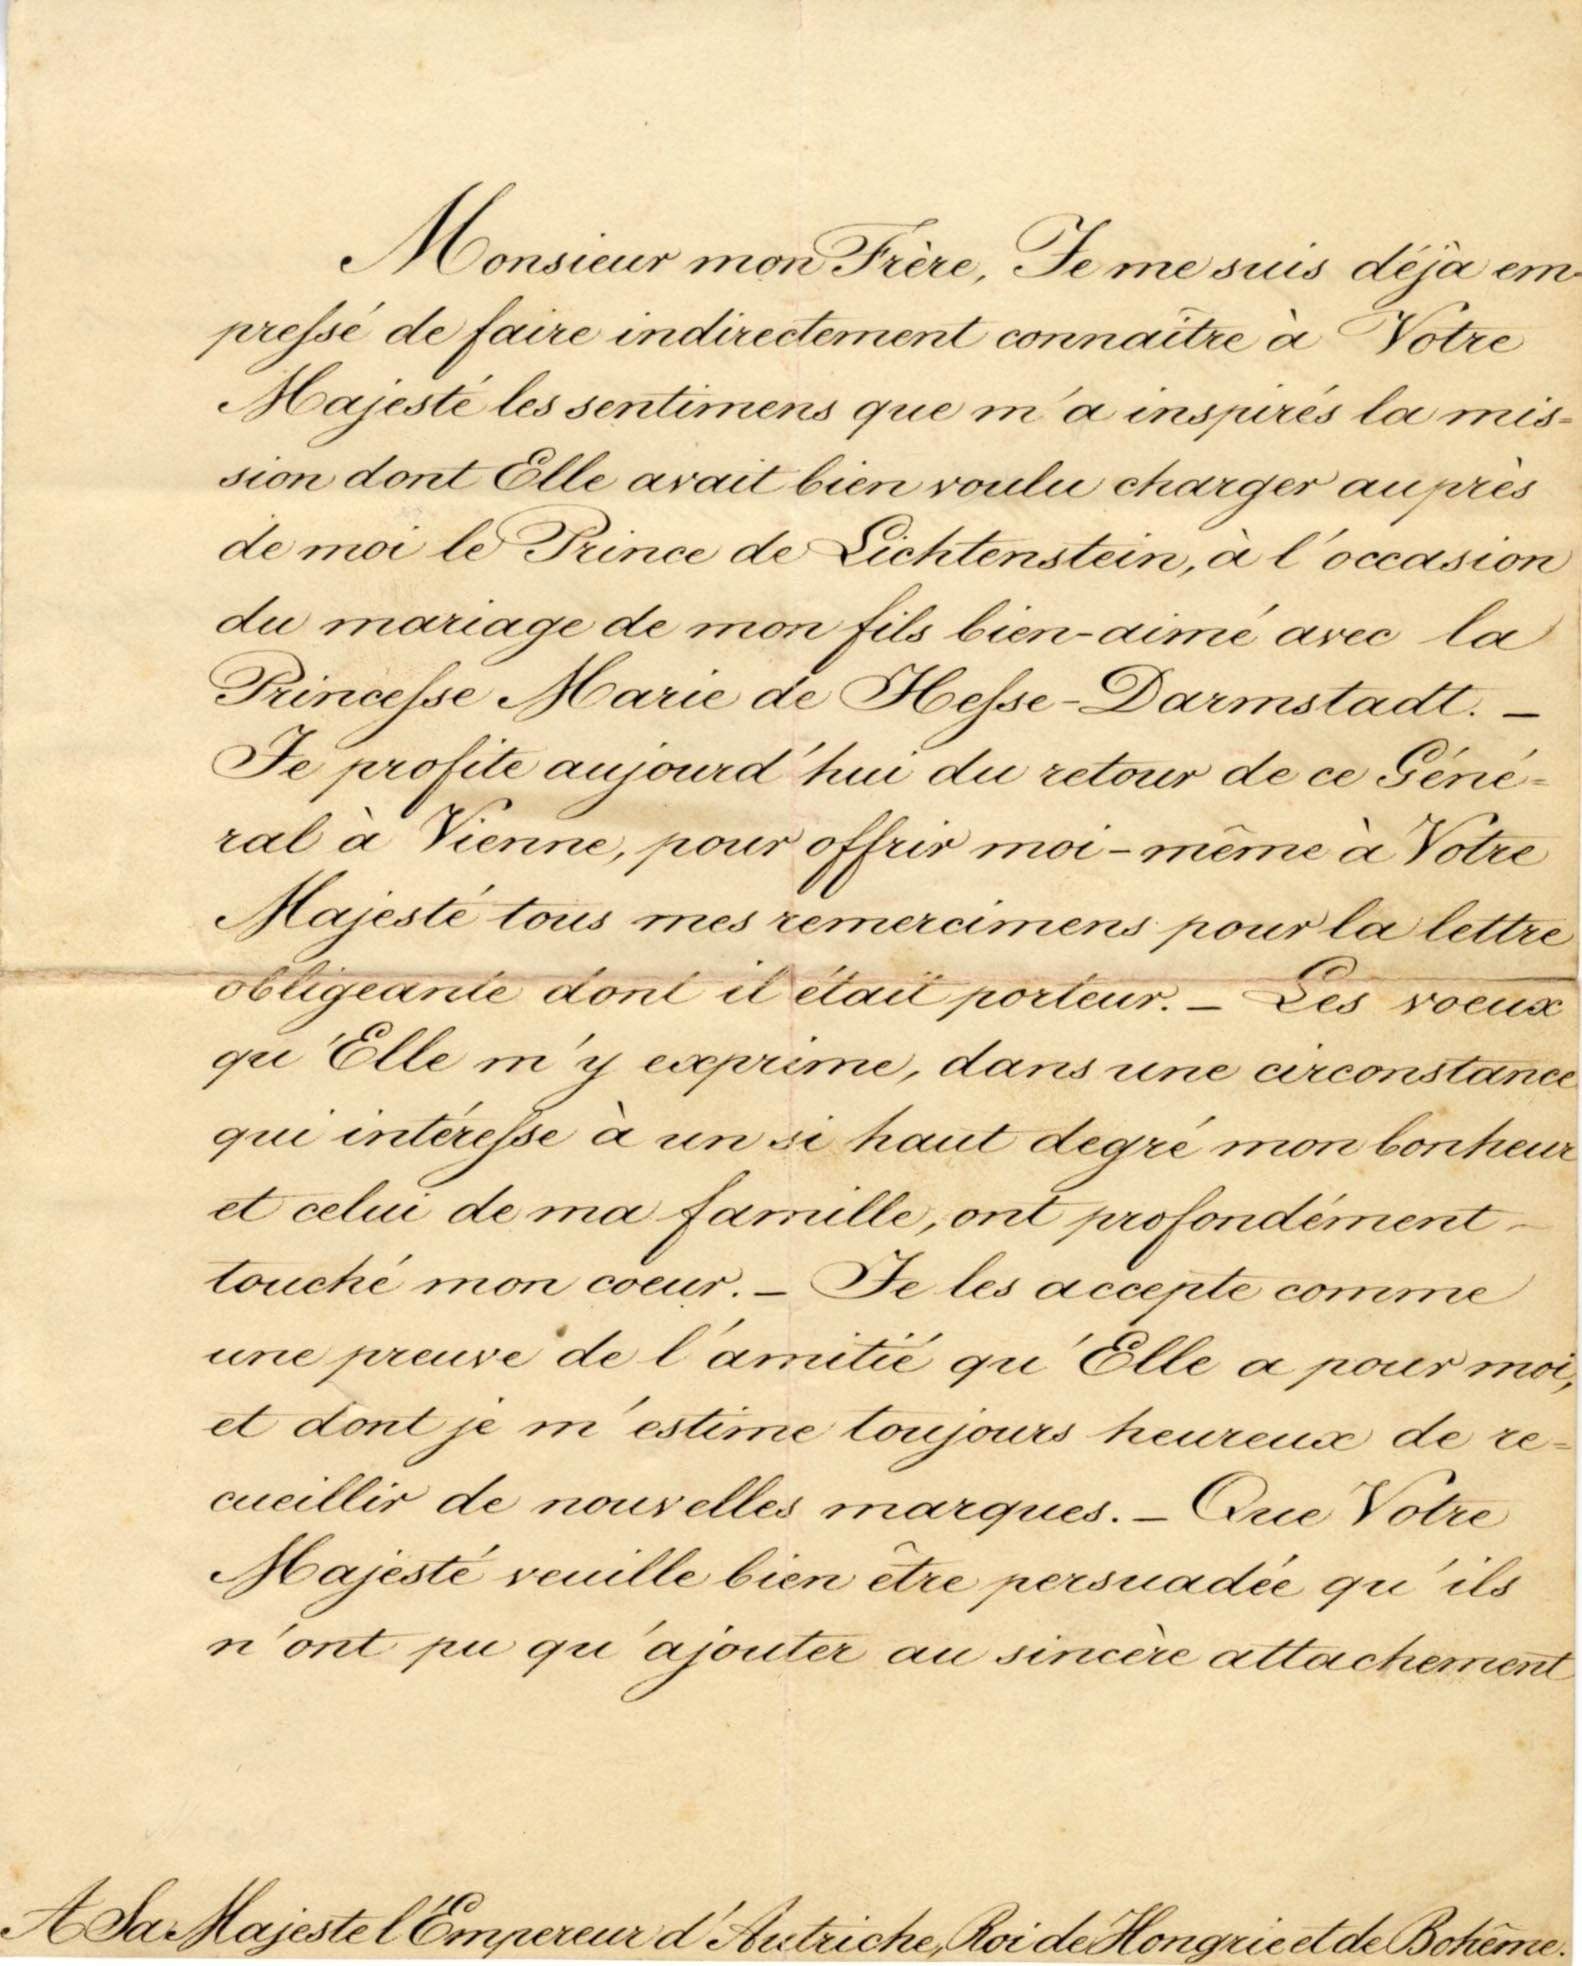 Monsieur mon Frère, Je me suis déjà em-
pressé de faire indirectement connaître à Votre
Majesté les sentimens que m'a inspirés la mis=
sion dont Elle avait bien voulu charger auprès
de moi le Prince de Lichtenstein, à l'occasion
du mariage de mon fils bien-aimé avec la
Princesse Marie de Hesse-Darmstadt. —
Je profite aujourd'hui du retour de ce Géné=
ral à Vienne, pour offrir moi-même à Votre
Majesté tous mes remercimens pour la lettre
obligeante dont il était porteur. — Les voeux
qu'Elle m'y exprime, dans une circonstance
qui intéresse à un si haut degré mon bonheur
et celui de ma famille, ont profondément —
touché mon coeur. — Je les accepte comme
une preuve de l'amitié qu'Elle a pour moi,
et dont je m'estime toujours heureux de re=
cueillir de nouvelles marques. — Que Votre
Majesté veuille bien être persuadée qu'ils
n'ont pu qu'ajouter au sincère attachement
A Sa Majesté l'Empereur d'Autriche, Roi de Hongrie et de Bohême.